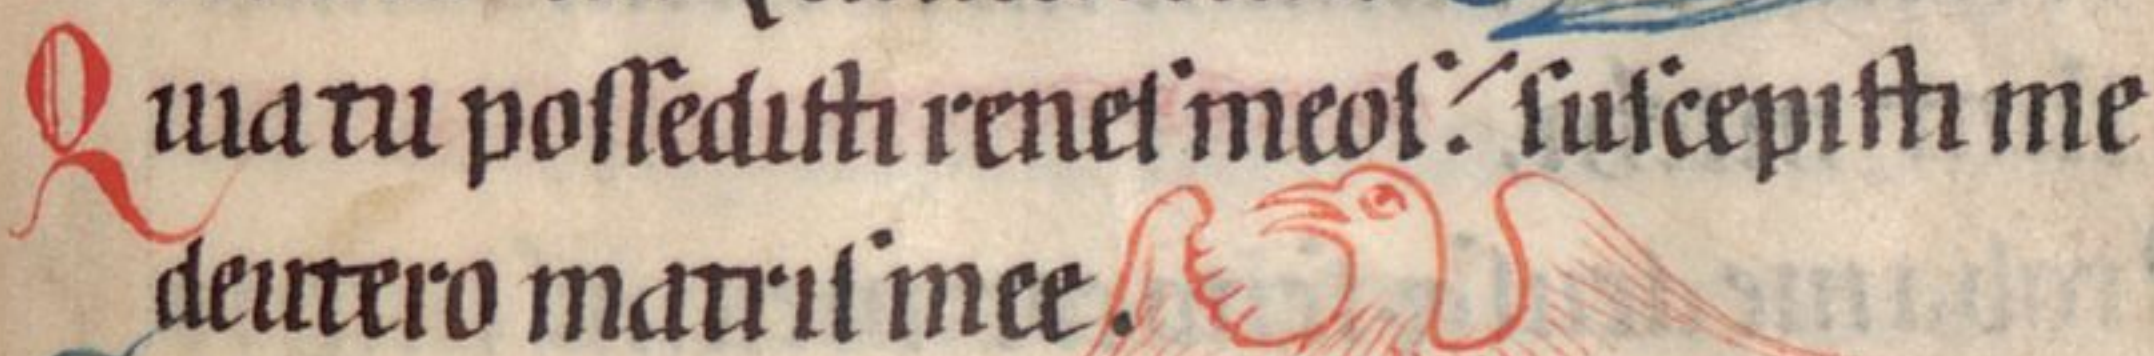 Quia tu poſſediſti reneſ meoſ: ſuſcepiſti me
deutero matriſ mee.